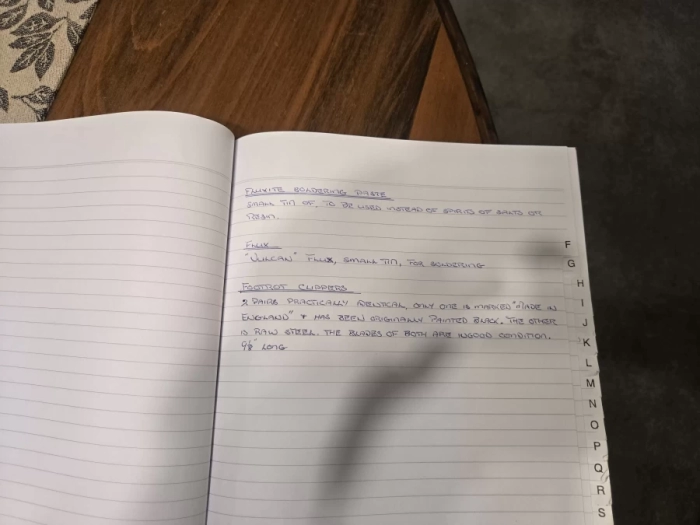 FLUXITE SOLDERING PASTE
SMALL TIN OF. TO BE USED INSTEAD OF SPIRITS OF SALTS OR
RESIN.
FLUX
"VULCAN" FLUX, SMALL TIN, FOR SOLDERING
FOOTROT CLIPPERS
2 PAIRS PRACTICALLY IDENTICAL, ONLY ONE IS MARKED "MADE IN
ENGLAND" & HAS BEEN ORIGINALLY PAINTED BLACK. THE OTHER
IS RAW STEEL. THE BLADES OF BOTH ARE IN GOOD CONDITION.
LONG
F
G
H
I
J
K
L
M
N
O
P
Q
R
S